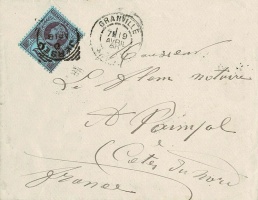 GRANVILLE
7E /9
AVRIL
Monsieur
Le Flem notaire
A Paimpol
(Côtes du Nord
France